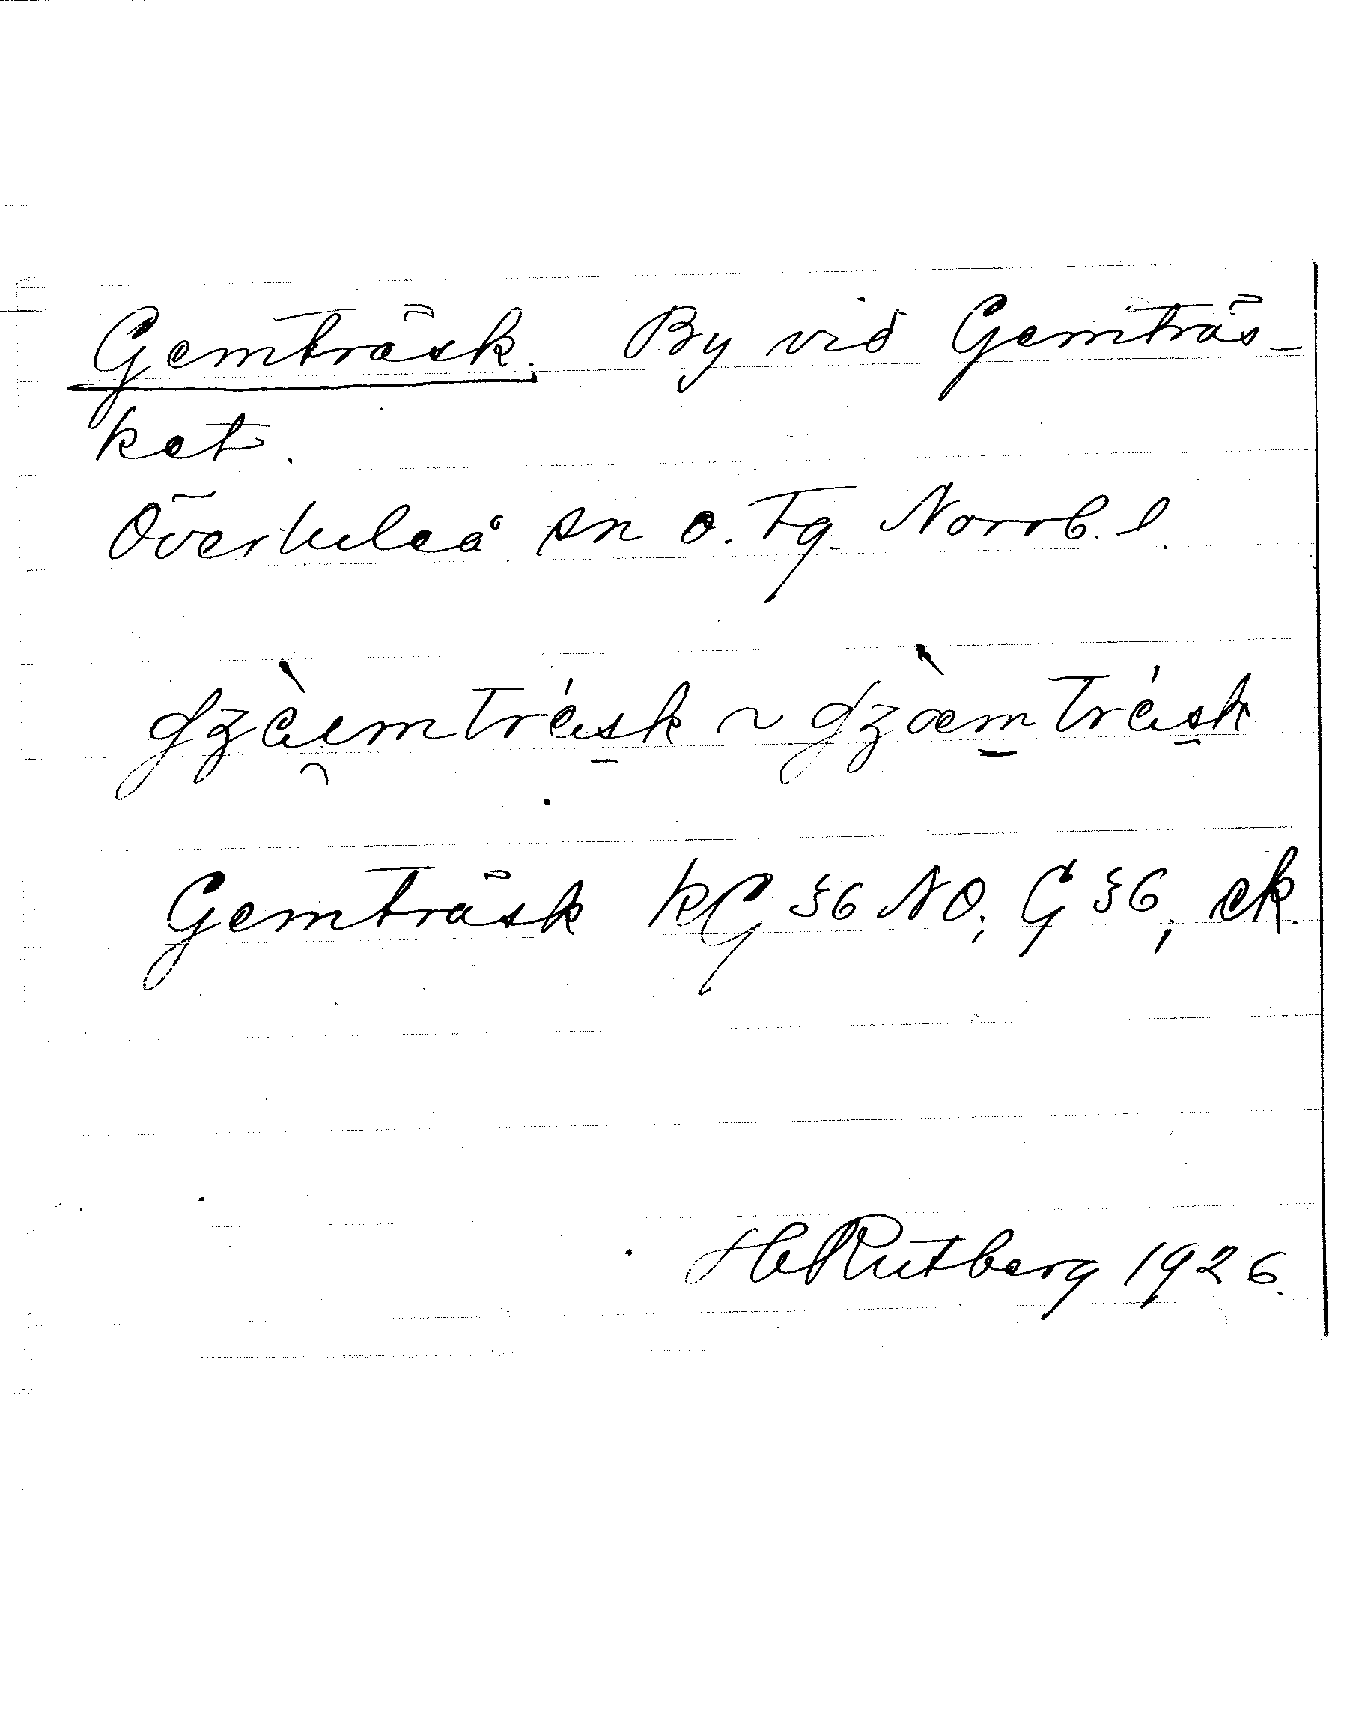 Gemträsk. By vid Gemträs-
ket.
Överluleå sn o. tg. Norrb. l.
gʒæ̀i̯mtrǽsk ~ gʒæ̀mtrǽsk
Gemträsk KG §6 NO, G §6, ek.
H Rutberg 1926.